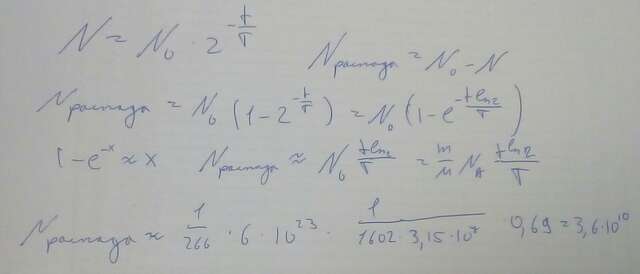 N = N₀ · 2^(-t/T)
Nраспада = N₀ - N
Nраспада = N₀ (1 - 2^(-t/T)) = N₀ (1 - e^(-t ln2/T))
1 - e^(-x) ≈ x Nраспада ≈ N₀ t ln2/T = m/M N_A t ln2/T
Nраспада ≈ 1/266 · 6 · 10^23 · 1/(1602 · 3,15 · 10^7) · 0,69 = 3,6 · 10^10